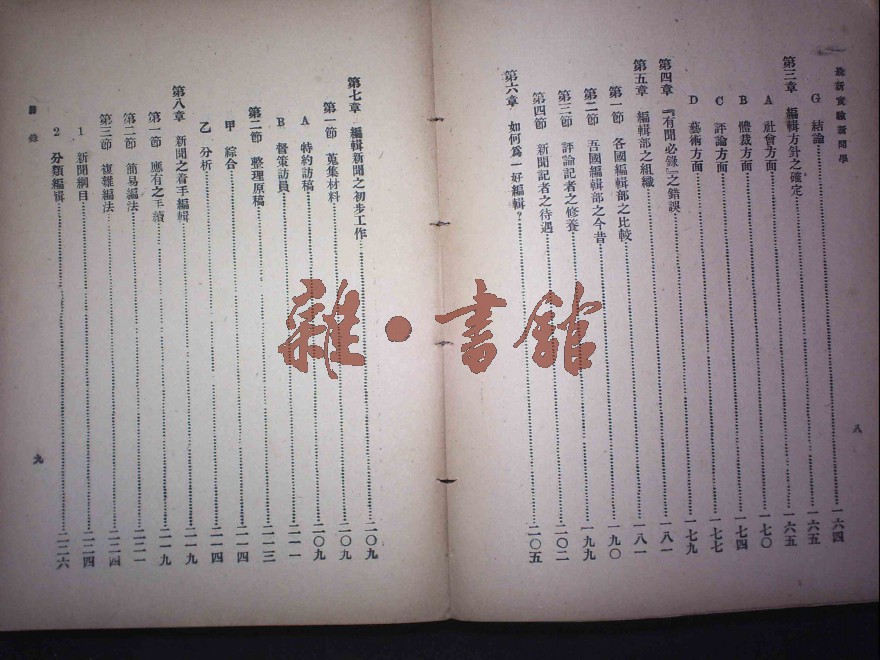 最新實驗新聞學
G 結論 一六四
第三章 編輯方針之確定 一六五
A 社會方面 一六五
B 體裁方面 一七〇
C 評論方面 一七四
D 藝術方面 一七七
第四章 『有聞必錄』之錯誤 一七九
第五章 編輯部之組織 一八一
第一節 各國編輯部之比較 一八一
第二節 吾國編輯部之今昔 一九〇
第三節 評論記者之修養 一九九
第四節 新聞記者之待遇 二〇二
第六章 如何爲一好編輯？ 二〇五
八
第七章 編輯新聞之初步工作 二〇九
第一節 蒐集材料 二〇九
A 特約訪稿 二〇九
B 督策訪員 二一一
第二節 整理原稿 二一三
甲 綜合 二一四
乙 分析 二一四
第八章 新聞之着手編輯 二一九
第一節 應有之手續 二一九
第二節 簡易編法 二二一
第三節 複雜編法 二二四
1 新聞綱目 二二四
2 分類編輯 二二六
目錄
九
雜·書館